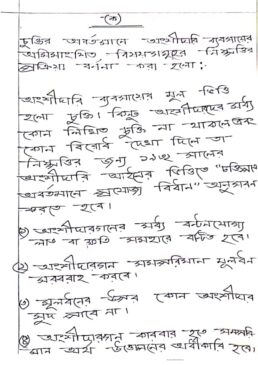 (ক)
চুক্তির অবর্তমানে অংশীদারি ব্যবসায়ের
অমিমাংসিত বিষয়সমূহের নিষ্পত্তির
প্রক্রিয়া বর্ণনা করা হলো:
অংশীদারি ব্যবসায়ের মূল ভিত্তি
হলো চুক্তি। কিন্তু অংশীদারদের মধ্যে
কোন লিখিত চুক্তি না থাকলে এবং
কোন বিরোধ দেখা দিলে তা
নিষ্পত্তির জন্য ১৯৩২ সালের
অংশীদারি আইনের ভিত্তিতে "চুক্তির
অবর্তমানে প্রযোজ্য বিধান" অনুসরণ
করতে হবে।
১) অংশীদারগনের মধ্যে বন্টনযোগ্য
লাভ বা ক্ষতি সমহারে বন্টিত হবে।
২) অংশীদারগন সমপরিমান মূলধন
সরবরাহ করবে।
৩) মূলধনের উপর কোন অংশীদার
সুদ পাবে না।
৪) অংশীদারগন কারবার হতে সমপরি
মান অর্থ উত্তোলনের অধিকারি হবে।